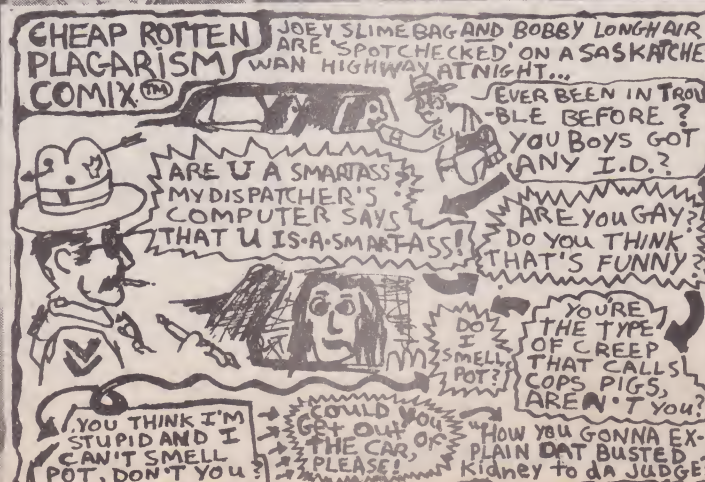 CHEAP ROTTEN
PLAGARISM
COMIX TM
JOEY SLIMEBAG AND BOBBY LONGHAIR
ARE 'SPOTCHECKED' ON A SASKATCHE
WAN HIGHWAY AT NIGHT...
EVER BEEN IN TROU
-BLE BEFORE?
YOU BOYS GOT
ANY I.D.?
ARE U A SMARTASS?
MY DISPATCHER'S
COMPUTER SAYS
THAT U IS-A-SMART-ASS!
ARE YOU GAY?
DO YOU THINK
THAT'S FUNNY?
YOU'RE
THE TYPE
OF CREEP
THAT CALLS
COPS PIGS,
AREN'T YOU?
DO
I
SMELL
POT?
YOU THINK I'M
STUPID AND I
CAN'T SMELL
POT, DON'T YOU?
COULD YOU
GET OUT OF
THE CAR,
PLEASE!
"HOW YOU GONNA EX-
PLAIN DAT BUSTED
Kidney to da JUDGE